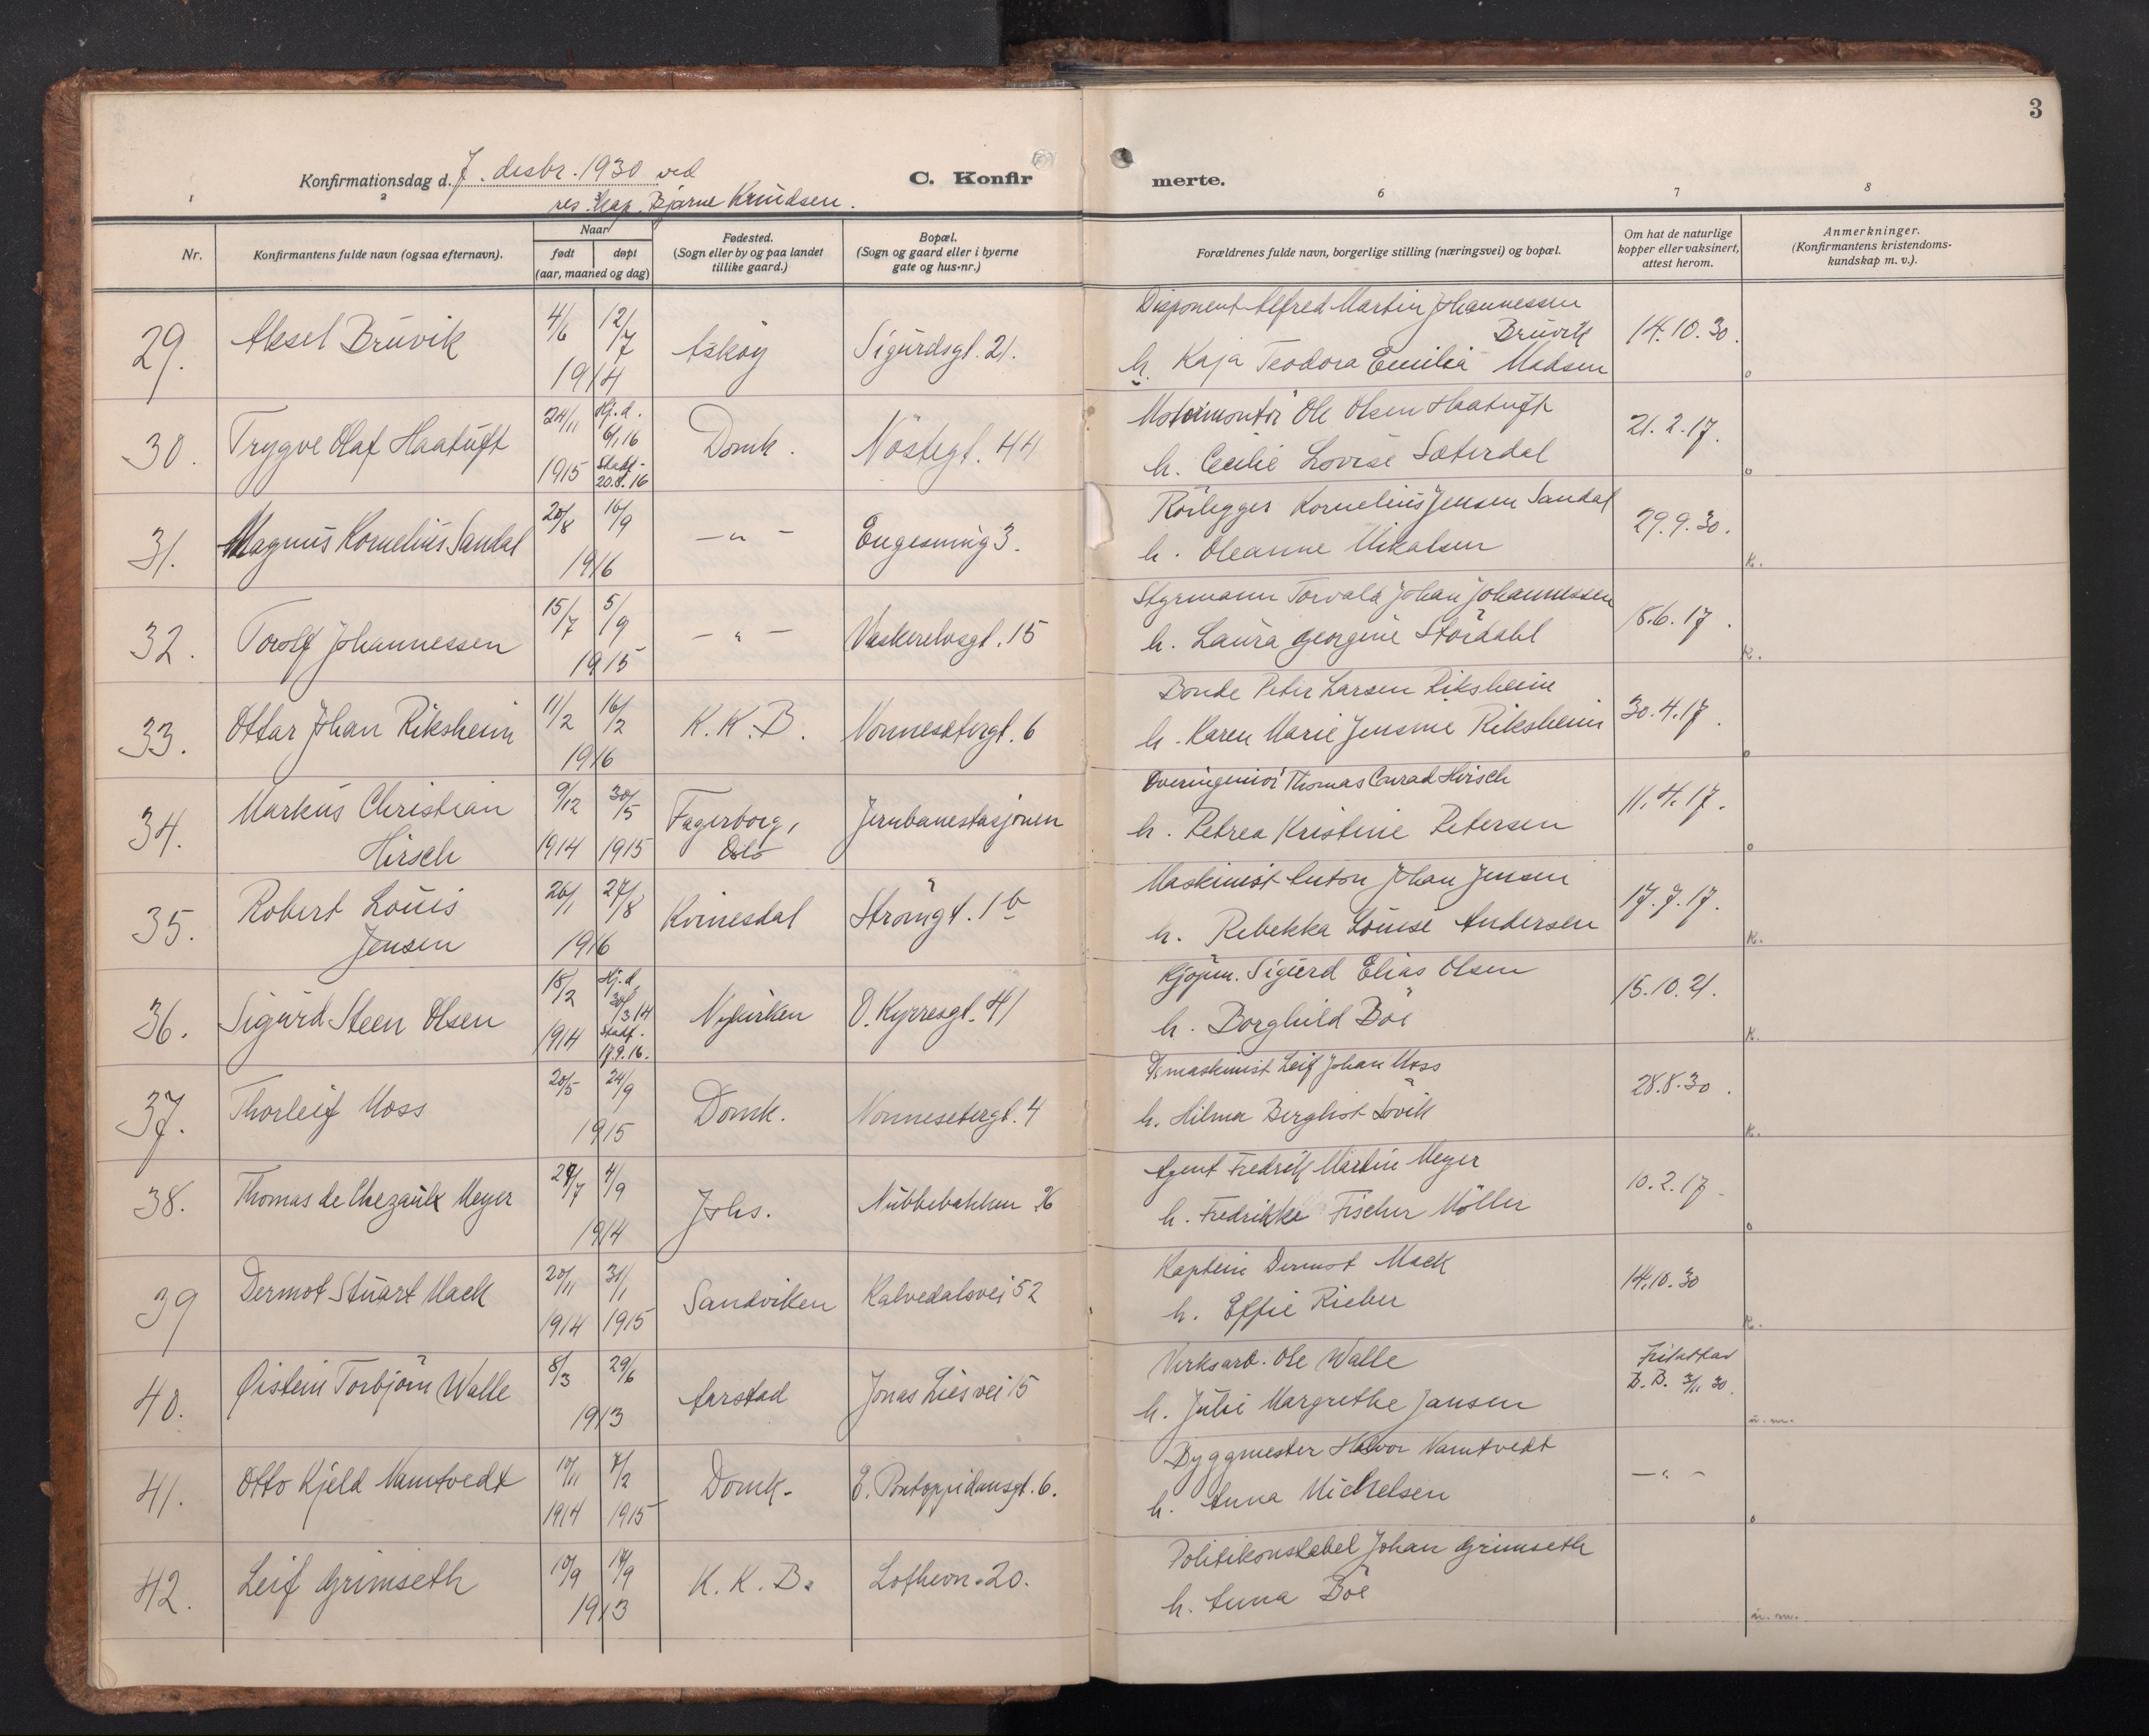 3
Konfirmationsdag d. 7. desbr. 1930 ved
res. kap. Bjarne Knudsen.
C. Konfirmerte.
1 2 6 7 8
Nr.
Konfirmantens fulde navn (ogsaa efternavn).
Naar
født døpt
(aar, maaned og dag)
Fødested.
(Sogn eller by og paa landet
tillike gaard.)
Bopæl.
(Sogn og gaard eller i byerne
gate og hus-nr.)
Forældrenes fulde navn, borgerlige stilling (næringsvei) og bopæl.
Om hat de naturlige
kopper eller vaksinert,
attest herom.
Anmerkninger.
(Konfirmantens kristendoms-
kundskap m. v.).
29. Aksel Bruvik 4/6 12/7 1914 Askøy Sigurdsgt. 21.
Disponent Alfred Martin Johannessen
Bruvik
h. Kaja Teodora Emilia Madsen
14.10.30. o
30. Trygve Olaf Haatuft 24/11 1915 Hj.d. 6/1 16 Stadf. 20.8.16 Domk. Nöstegt. 44
Motormontör Ole Olsen Haatuft
h. Cecilie Lovise Sæterdal
21.2.17. o
31. Magnus Kornelius Sandal 20/8 16/9 1916 — " — Engesmug 3.
Rörlegger Kornelius Jensen Sandal
h. Oleanne Mikalsen
29.9.30. K.
32. Torolf Johannessen 15/7 5/9 1915 — " — Vaskerelvsgt. 15
Styrmann Torvald Johan Johannessen
h. Laura Georgine Stördahl
18.6.17. K.
33. Ottar Johan Riksheim 11/2 16/2 1916 K.K.B. Nonnesetergt. 6
Bonde Peter Larsen Riksheim
h. Karen Marie Jensine Riksheim
30.4.17. o
34. Markus Christian
Hirsch
9/12 1914 30/5 1915 Fagerborg,
Oslo
Jernbanestasjonen
Overingeniör Thomas Conrad Hirsch
h. Petrea Kristine Petersen
11.4.17. o
35. Robert Louis
Jensen
26/1 27/8 1916 Kvinesdal Strömgt. 1 b
Maskinist Anton Johan Jensen
h. Rebekka Louise Andersen
17.7.17. K.
36. Sigurd Steen Olsen 18/2 1914 Hj.d. 30/3 14 Stadf. 17.9.16. Nykirken O. Kyrresgt. 41
Kjöpm. Sigurd Elias Olsen
h. Borghild Böe
15.10.21. K.
37. Thorleif Moss 20/5 24/9 1915 Domk. Nonnesetergt. 4
maskinist Leif Johan Moss
h. Hilma Berghist Lövik
28.8.30. K.
38. Thomas de Chezaulx Meyer 29/7 4/9 1914 Johs. Nubbebakken 26
Agent Fredrik Martin Meyer
h. Fredrikke Fischer Möller
10.2.17. o
39 Dermot Stuart Mack 20/11 1914 31/1 1915 Sandviken Kalvedalsvei 52
Kaptein Dermot Mack
h. Effie Rieber
14.10.30 K.
40. Øistein Torbjörn Walle 8/3 29/6 1913 Aarstad Jonas Liesvei 15
Verksarb. Ole Walle
h. Julie Margrethe Jansen
Fritatt av
B.B. 3/11 30. u.m.
41. Otto Kjeld Namtvedt 10/11 1914 7/2 1915 Domk. E. Pontoppidansgt. 6.
Byggmester Halvor Namtvedt
h. Anna Michelsen
— " — o
42. Leif Grimseth 10/9 14/9 1913 K.K.B. Lothevn. 20.
Politikonstabel Johan Grimseth
h. Anna Böe
u.m.